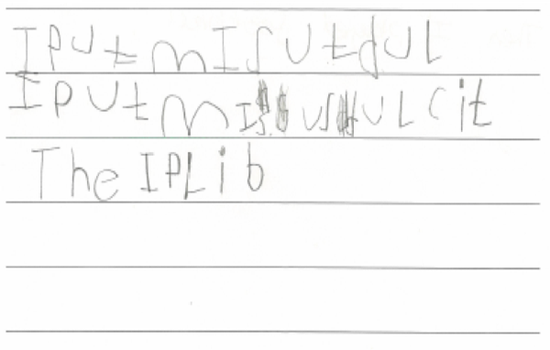 I PUt MISUtdUL
I PUt MIS USdUL Cit
The IPLib